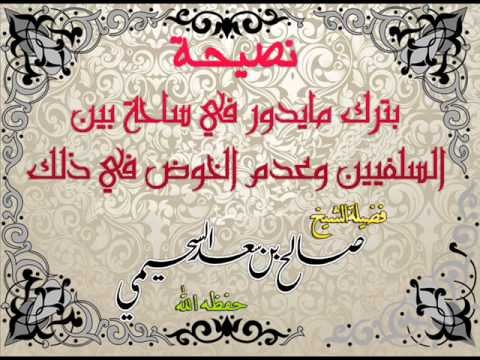 نصيحة
بترك مايدور في ساحة بين
السلفيين وعدم الخوض في ذلك
فضيلة الشيخ
صالح بن سعد السحيمي
حفظه الله